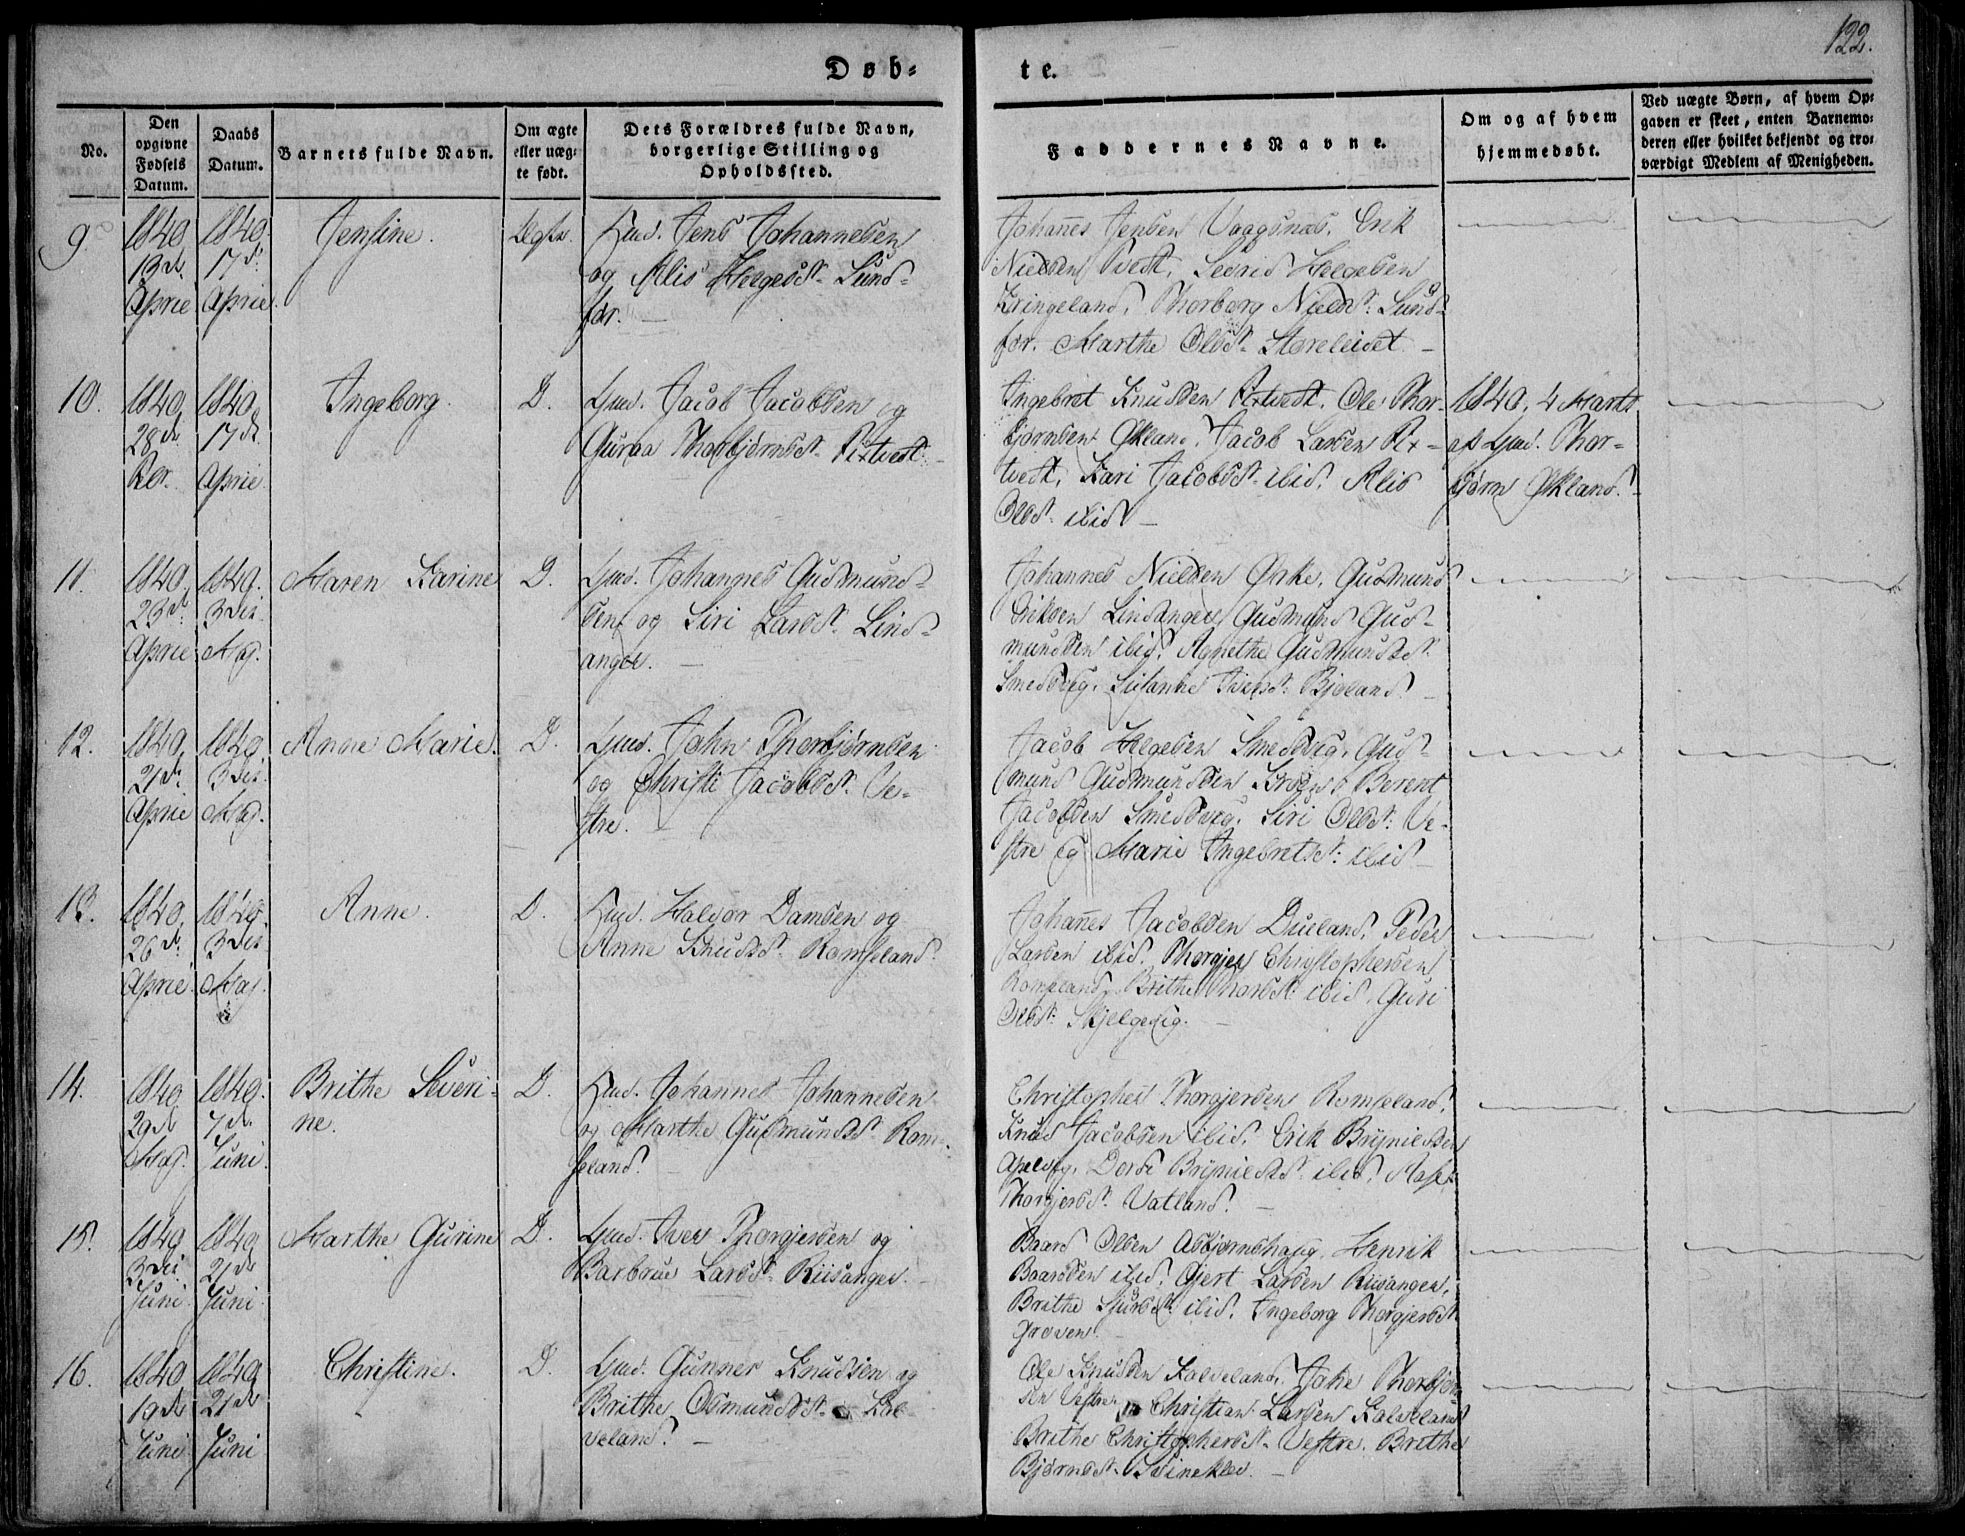 122.
Døb=
te.
No.
Den opgivne Fødsels Datum.
Daabs Datum.
Barnets fulde Navn.
Om ægte eller uæg- te født.
Dets Forældres fulde Navn, borgerlige Stilling og Opholdssted.
Faddernes Navne.
Om og af hvem hjemmedøbt.
Ved uægte Børn, af hvem Op- gaven er skeet, enten Barnemo- deren eller hvilket bekjendt og tro- værdigt Medlem af Menigheden.
9
1840 13d April
1840 17d April
Jensine.
Huusm. Jens Johannesen
og Alis Helgesd. Sund-
før.
Johañes Jensen Vaagsnæs, Erik
Nielsen Tvedt, Helgesen
Kringeland, Thorborg Nielsd. Sund-
før, Marthe Olsd.
10.
1840 28d
1840 17d April
Ingeborg.
D.
Gmd. Jacob Jacobsen og
Guroa Thorbjørnsd. Rixtvedt
Ingebret Knudsen Rixtvedt, Ole Thor-
bjørnsen Økland, Jacob Larsen Rix-
tvedt, Kari Jacobsd. ibid, Alis
Olsd. ibid
1840, 4 Marts
af Gmd. Thor-
bjørn Økland.
11.
1840 23d April
1840 3die Maj.
Maren Karine
D.
Gmd. Johannes Gudmund-
sen og Siri Larsd. Lind-
anger.
Johannes Nielsen Ørke, Gudmund
Eriksen Lindanger, Gudmund Gud-
mundsen ibid, Agnethe Gudmundsd.
Smedsvig, Susanne Iversd. Bjeland
12.
1840 21d April
1840 3die Maj.
Anne Marie.
D.
Gmd. John Thorbjørnsen
og Christi Jacobsd. Ve-
stre.
Jacob Helgesen Smedsvig, Gud-
mund Gudmundsen Berent
Jacobsen Smedsvig, Siri Olsd. Ve-
stre og Marie Ingebretsd. ibid
13.
1840 26d April
1840 3die Maj.
Anne.
D.
Huusm. Halvor Damsen og
Anne Knudsd. Romseland.
Johañes Jacobsen Dueland, Peder
Larsen ibid, Thorgjer Christophersen
Romseland, Brithe ibid, Guri
Olsd. Skjelgevig.
14.
1840 29d Maj.
1840 7d Juni.
Brithe Severi-
ne.
D.
Huusm. Johannes Johannesen
og Marthe Gudmundsd. Rom-
seland.
Christopher Thorgjersen Romseland,
Knud Jacobsen ibid, Erik Brynildsen
Apelvig, Dorde Brynildsd. ibid,
Thorgjersd. Vatland.
15.
1840 3die Juni
1840 21de Juni
Marthe Gurine
D.
Gmd. Iver Thorgjersen og
Barbrue Larsd. Riisanger.
Baard Olsen Asbjørnshaug, Henrik
Baardsen ibid, Gjert Larsen Riisanger,
Brithe Sjursd. ibid, Ingeborg Thorgjersd.
Groven.
16.
1840 10d Juni
1840 21de Juni
Christine.
D.
Gmd. Gunner Knudsen og
Brithe Osmundsd. Kal-
veland.
Ole Knudsen Kalveland, Thorbjørn-
sen Vestre, Christian Larsen Kalveland
Brithe Christophersd. Vestre, Brithe
Bjørnsd. Svineklev.